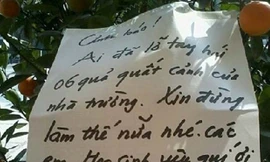 Cảm báo!
Ai đã lỡ tay hái
06 quả quất cảnh của
nhà trường. Xin đừng
làm thế nữa nhé. các
em Học sinh yêu quí ơi